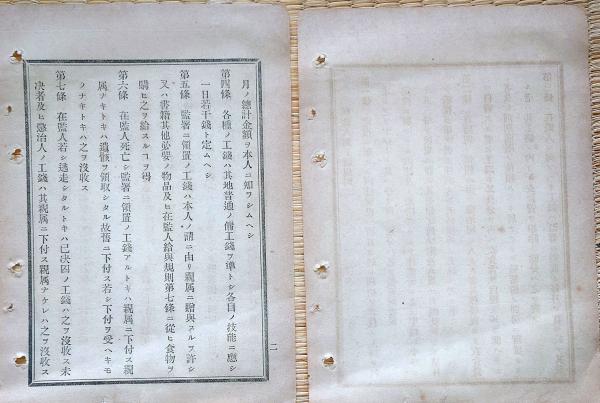 月ノ總計金額ヲ本人ニ知ラシムヘシ
第四條 各種ノ工錢ハ其地普通ノ傭工錢ヲ準トシ各自ノ技能ニ應シ
一日若干錢ト定ムヘシ
第五條 監署ニ領置ノ工錢ハ本人ノ請ニ由リ親属ニ贈與スルヲ許シ
又ハ書籍其他必要ノ物品及ヒ在監人給與規則第七條ニ從ヒ食物ヲ
購ヒ之ヲ給スルヿヲ得
第六條 在監人死亡シ監署ニ領置ノ工錢アルトキハ親属ニ下付ス親
属ナキトキハ遺骸ヲ領取シタル故舊ニ下付ス若シ下付ヲ受ヘキモ
ノナキトキハ之ヲ沒收ス
第七條 在監人若シ逃走シタルトキハ已决囚ノ工錢ハ之ヲ沒收ス未
决者及ヒ懲治人ノ工錢ハ其親属ニ下付ス親属ナケレハ之ヲ沒收ス
二